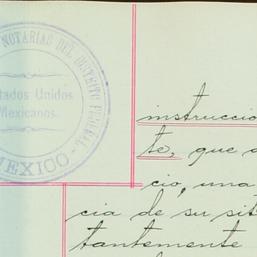 NOTARIAS DEL DISTRITO FEDERAL
Estados Unidos
Mexicanos.
MEXICO
instruccio
te, que
cio, una
cia de su sit
tantemente